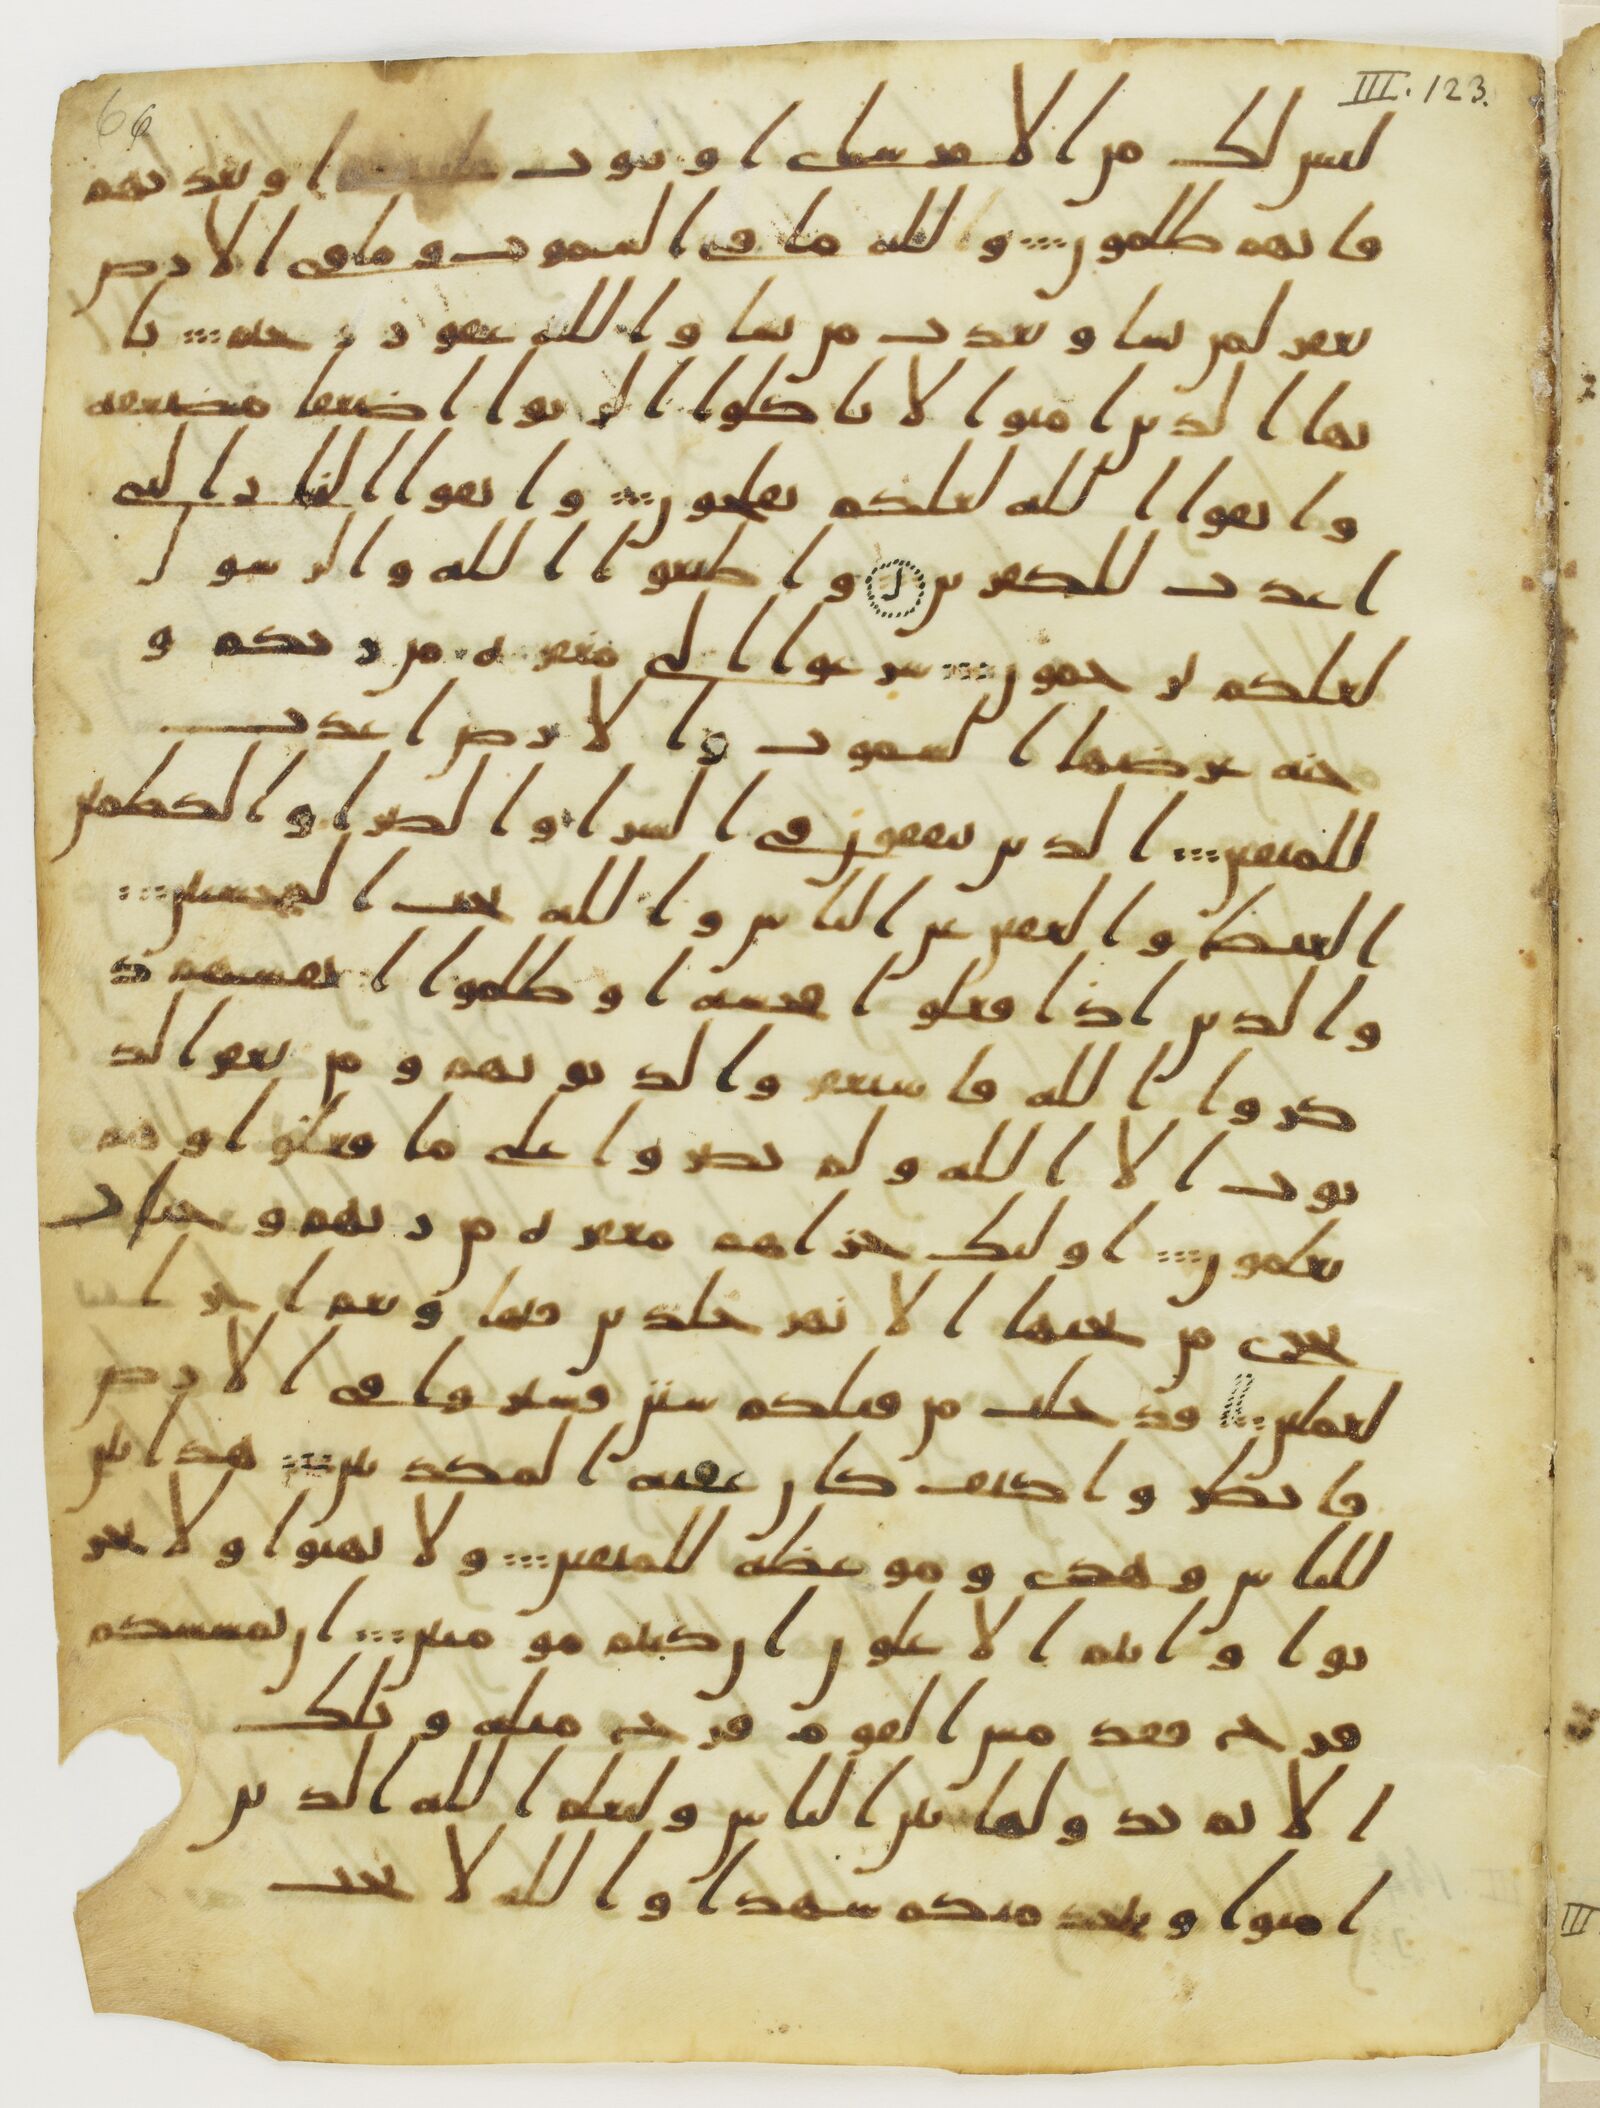 III. 123.
66
ليس لك من الامر شى او يتوب عليهم او يعذبهم
فانهم ظلمون ولله ما فى السموت وما فى الارض
يغفر لمن يشا ويعذب من يشا والله غفور رحيم يا
يها الذين امنوا لا تاكلوا الربوا اضعفا مضعفه
واتقوا الله لعلكم تفلحون واتقوا النار التى
اعدت للكفرين واطيعوا الله والرسول
لعلكم ترحمون سرعوا الى مغفره من ربكم و
جنه عرضها السموت والارض اعدت
للمتقين الذين ينفقون فى السرا والضرا والكظمين
الغيظ والعفين عن الناس والله يحب المحسنين
والذين اذا فعلوا فحشه او ظلموا انفسهم ذ
كروا الله فاستغفروا لذنوبهم ومن يغفر الذ
نوب الا الله ولم يصروا على ما فعلوا وهم
يعلمون اوليك جزاهم مغفره من ربهم وجنات
تجرى من تحتها الانهر خلدين فيها ونعم اجر ا
لعملين قد خلت من قبلكم سنن فسيروا فى الارض
فانظروا كيف كان عقبه المكذبين هذا بين
للناس وهدى وموعظه للمتقين ولا تهنوا ولا تحز
نوا وانتم الاعلون ان كنتم مومنين ان يمسسكم
قرح فقد مس القوم قرح مثله وتلك
الايم ندولها بين الناس وليعلم الله الذين
امنوا ويتخذ منكم شهدا والله لا يحب